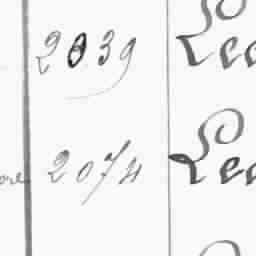 2039 Lea
ore 2074 Lea